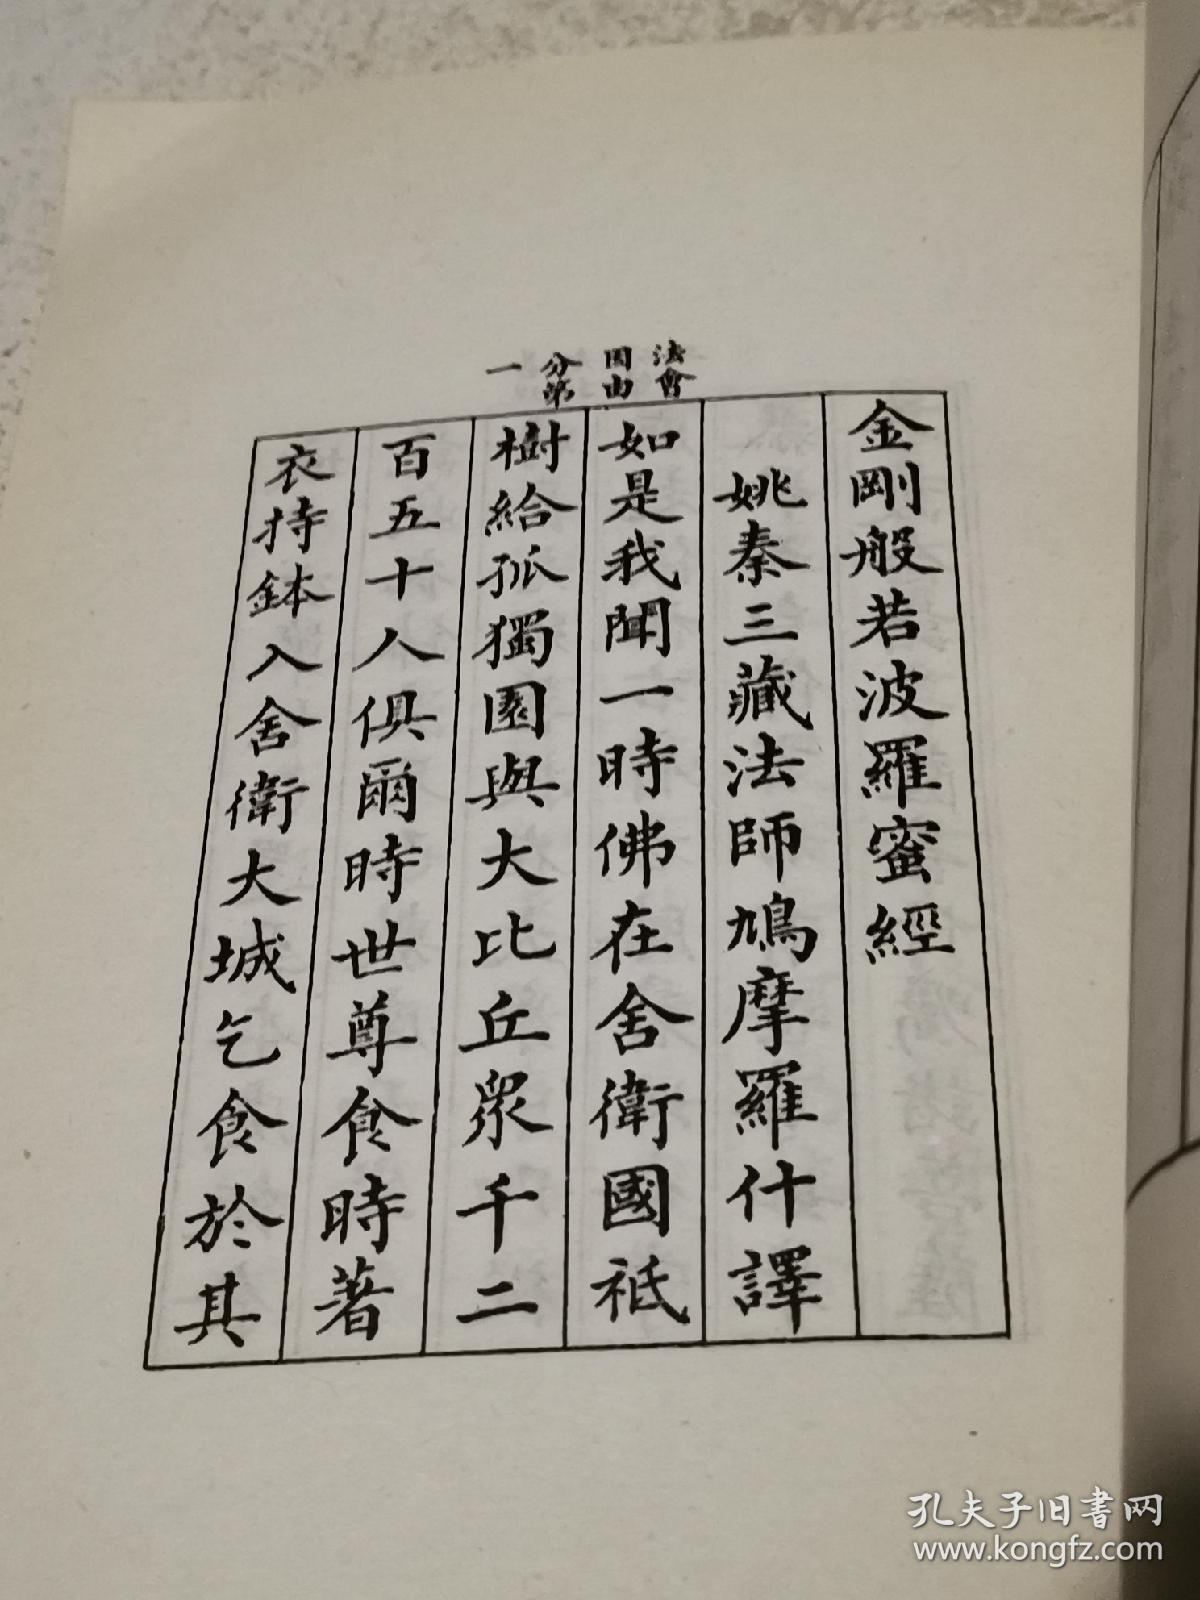 法會因由分第一
金剛般若波羅蜜經
姚秦三藏法師鳩摩羅什譯
如是我聞一時佛在舍衛國祇
樹給孤獨園與大比丘眾千二
百五十人俱爾時世尊食時著
衣持鉢入舍衛大城乞食於其
孔夫子旧书网
www.kongfz.com